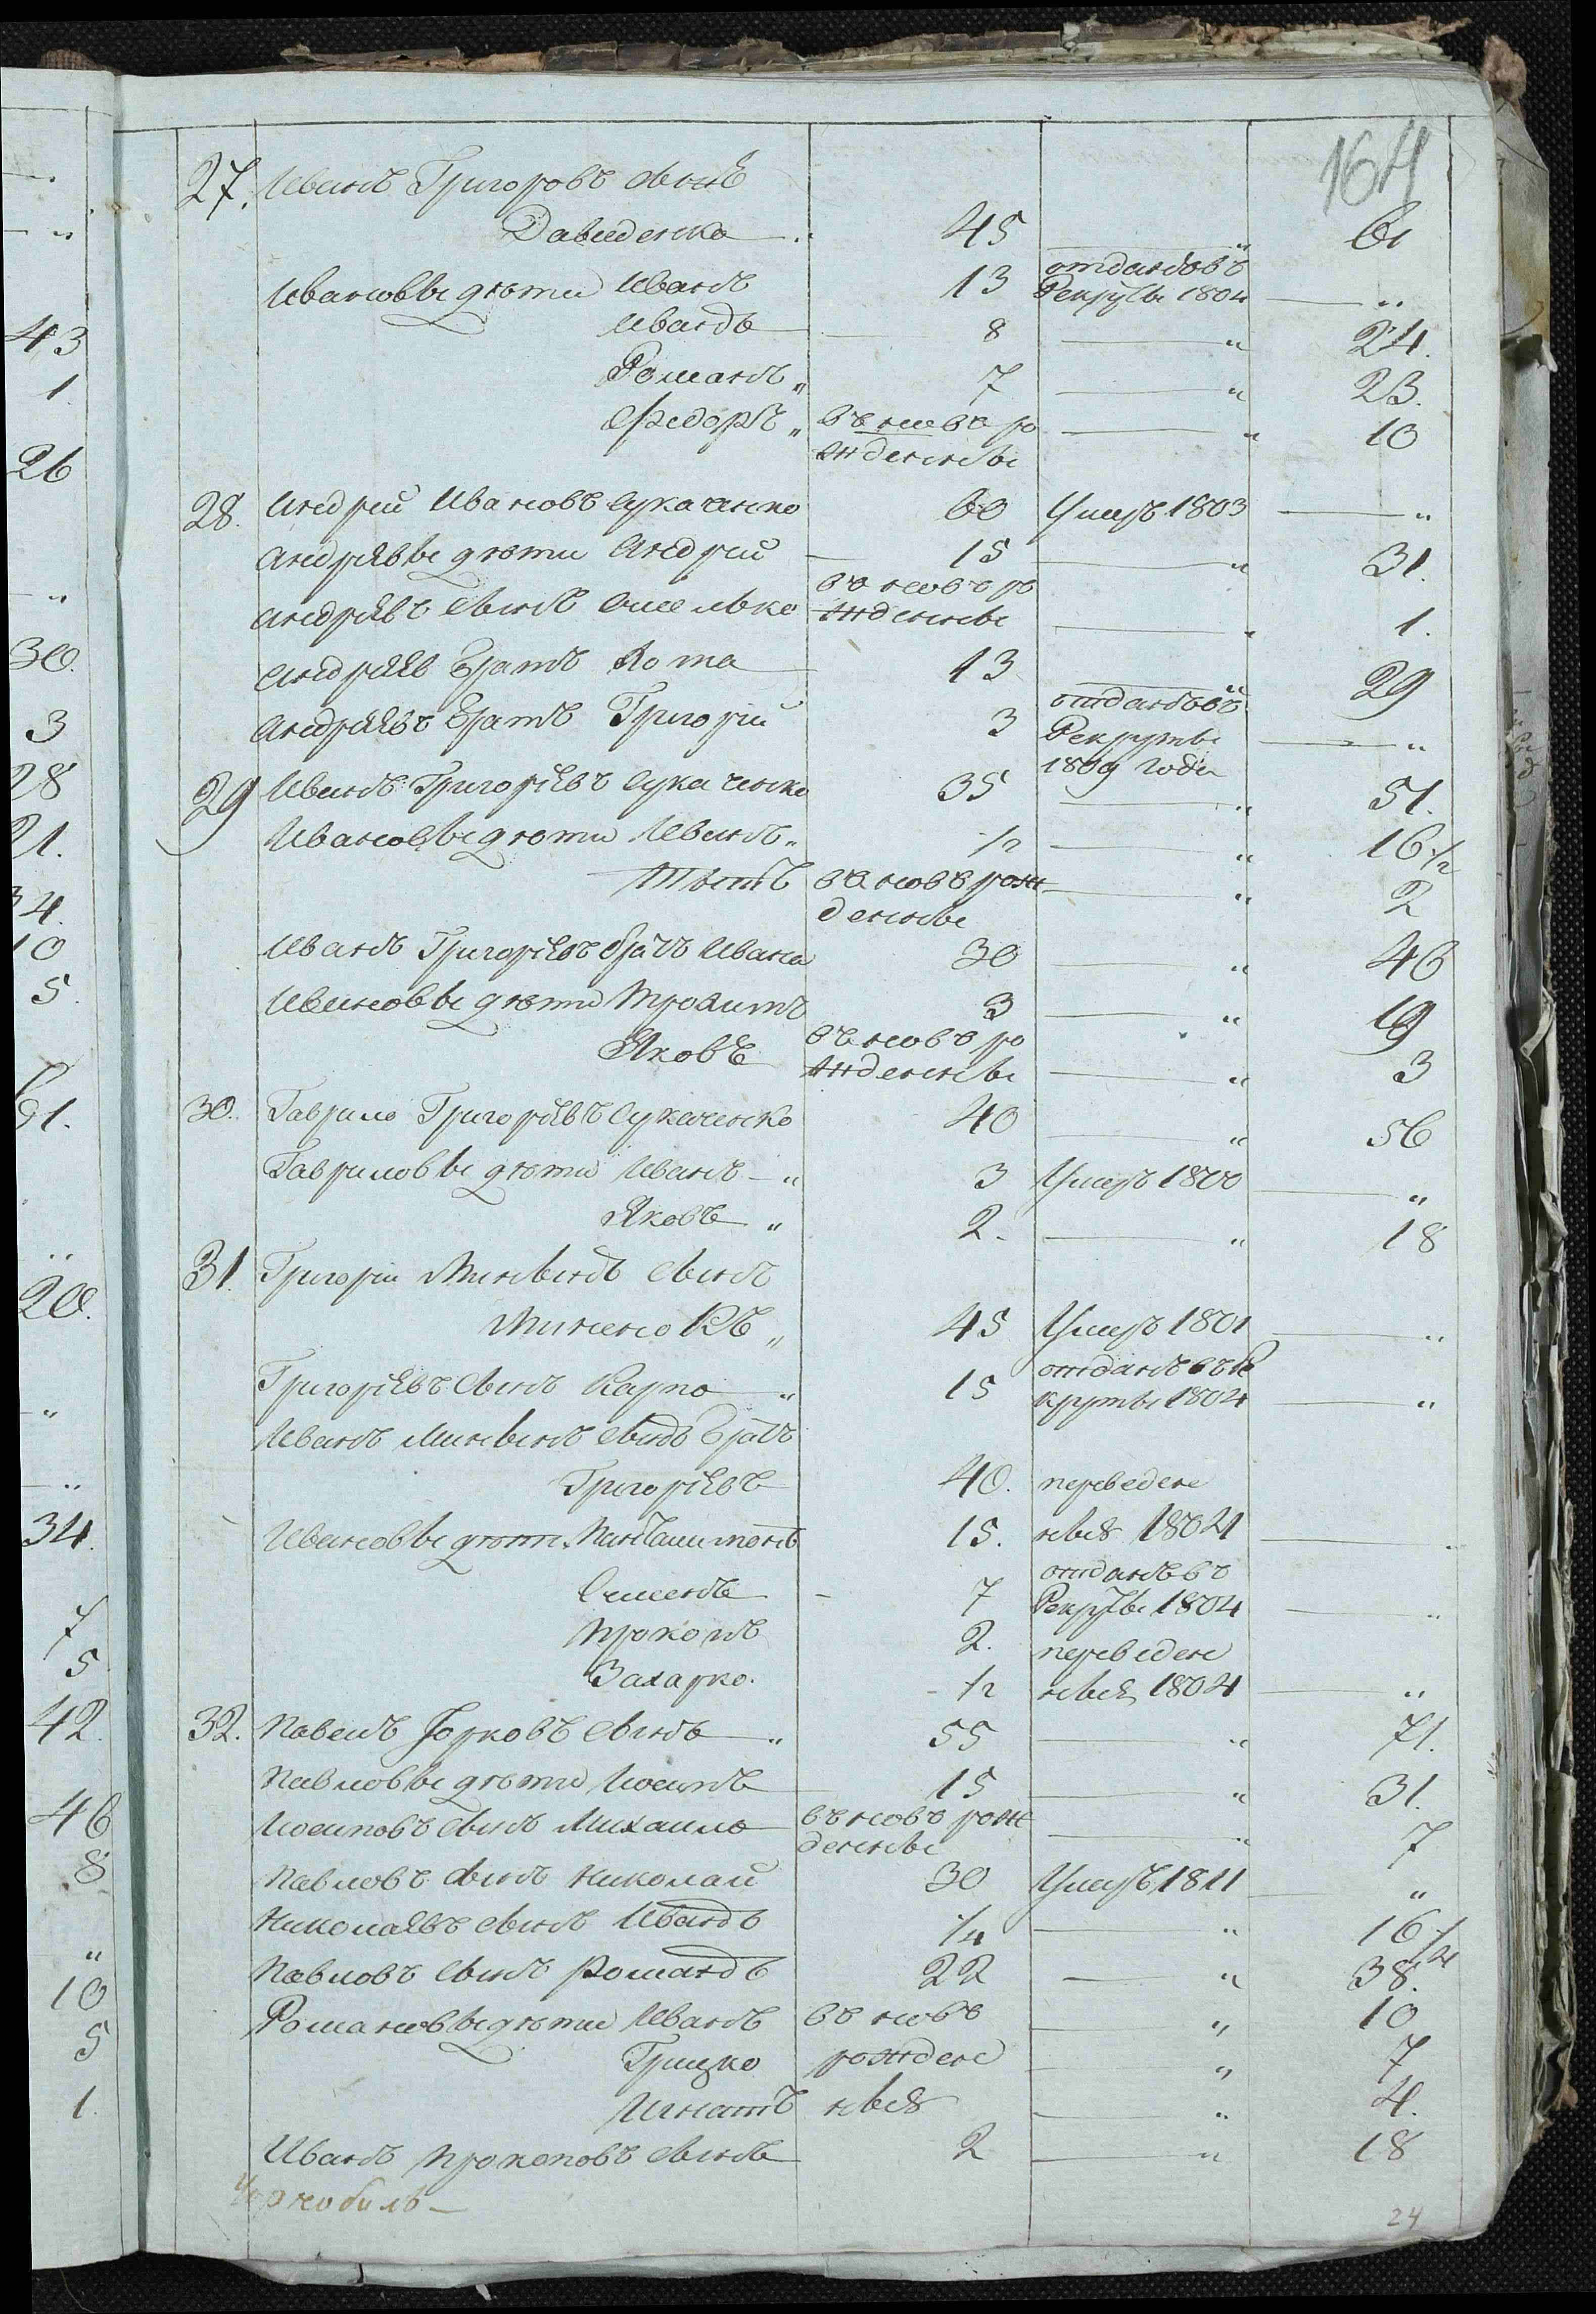 164
27. Иванъ Григоровъ сынъ
Давиденко 45 " 61
Ивановы дѣти Иванъ 13 отданъ въ Рекруты 1804 "
Иванъ 8 " 24.
Романъ " 7 " 23.
Федоръ " въ новѣ рожденны " 10
28. Андрѣй Ивановъ Сукаченко 60 Умеръ 1803 "
Андрѣевы дѣти Андрѣй 15 " 31.
Андрѣевъ сынъ Омелько въ новѣ рожденны " 1.
Андрѣевъ братъ 13 " 29
Андрѣевъ братъ Григорій 3 отданъ въ Рекруты 1809 года "
29 Иванъ Григорьевъ Сукаченко 35 " 51.
Ивановы дѣти Иванъ " 1/2 " 16 1/2
Титъ въ новѣ рожденны " 2
Иванъ Григорьевъ братъ Ивана 30 " 46
Ивановы дѣти Трохимъ 3 " 19
Яковъ въ новѣ рожденны " 3
30. Гаврило Григорьевъ Сукаченко 40 " 56
Гавриловы дѣти Иванъ " 3 Умеръ 1800 "
Яковъ " 2. " 18
31. Григорій Мининъ сынъ
" 45 Умеръ 1801 "
Григорьевъ сынъ Карпо " 15 отданъ въ Рекруты 1804 "
Иванъ Мининъ сынъ братъ
Григорьевъ 40. переведен
Ивановы дѣти Пантелимонъ 15. ные 1804
Семенъ - 7 отданъ въ Рекруты 1804 "
Прокопъ 2. переведен
Захарко. 1/2 ные 1804 "
32. Павелъ Юрковъ сынъ " 55 " 71.
Павловы дѣти Иосипъ 15 " 31.
Иосиповъ сынъ Михайло въ новѣ рожденны " 7
Павловъ сынъ Николай 30 Умеръ 1811 "
Николаевъ сынъ Иванъ 1/4 " 16 1/4
Павловъ сынъ Романъ 22 " 38.
Романовы дѣти Иванъ въ новѣ " 10
Грицко рожден " 7
Игнатъ ные " 4.
Иванъ Прокоповъ сынъ 2 " 18
Чорнобиль
24
43
1.
26
"
30.
3
28
21.
34.
10
5.
61.
20.
"
34.
7
5
42.
46
8
"
10
5
1.